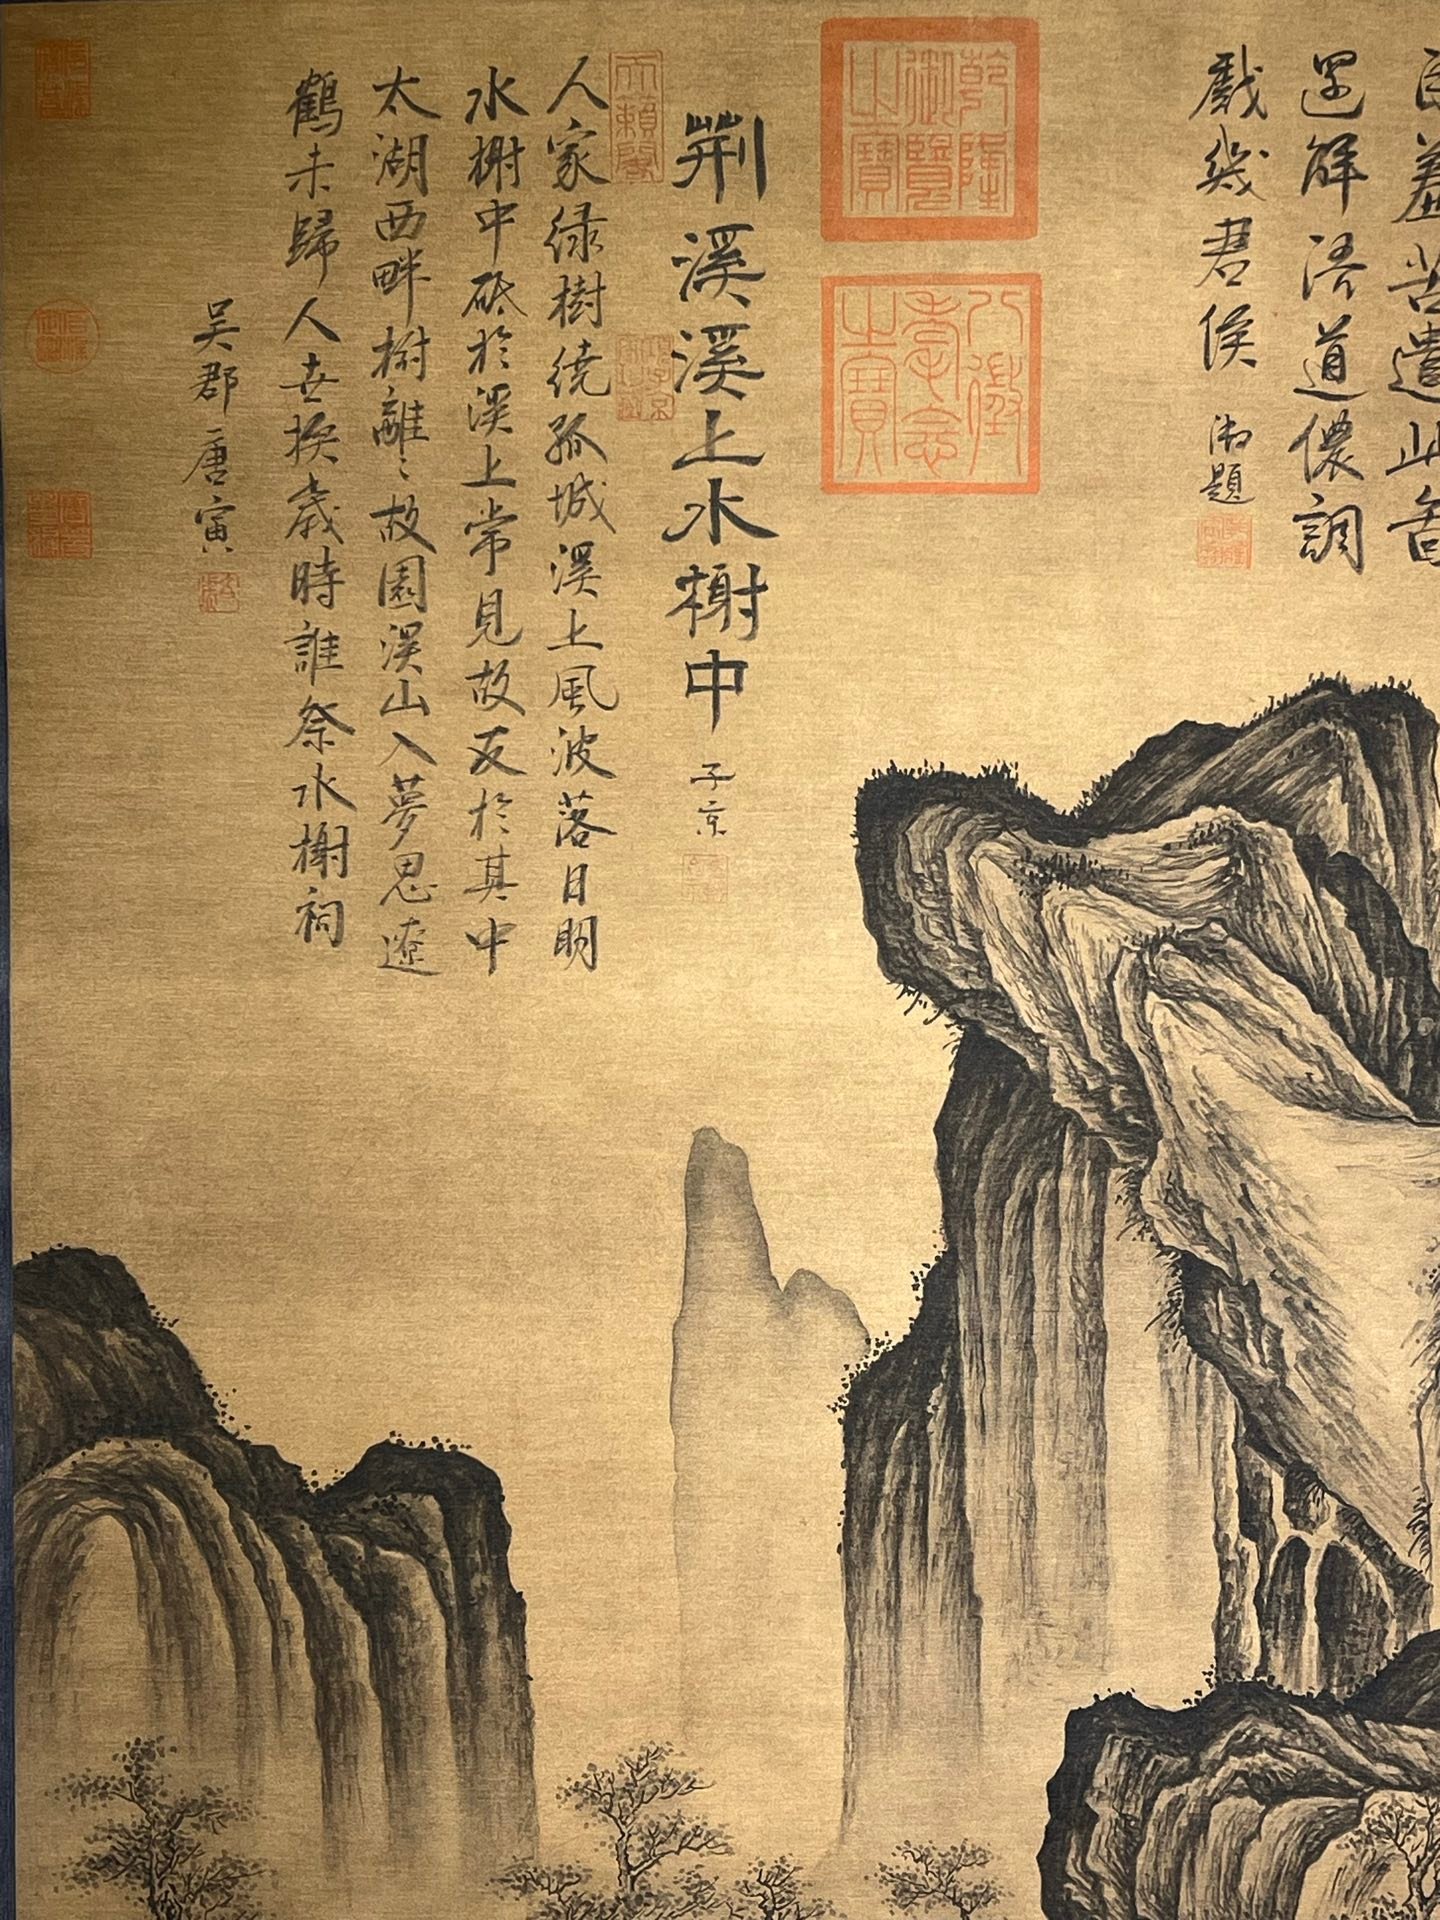 羞苦遭此
解语道儂調
戲幾君侯 御題
乾隆御覽之寶
八徵耄念之寶
荆溪溪上水榭中 子京
天籟閣
人家绿樹绕孤城溪上風波落日明
水榭中砥於溪上常見故友於其中
太湖西畔樹離〻故園溪山入夢思遼
鶴未歸人世换歲時誰祭水榭祠
吴郡唐寅